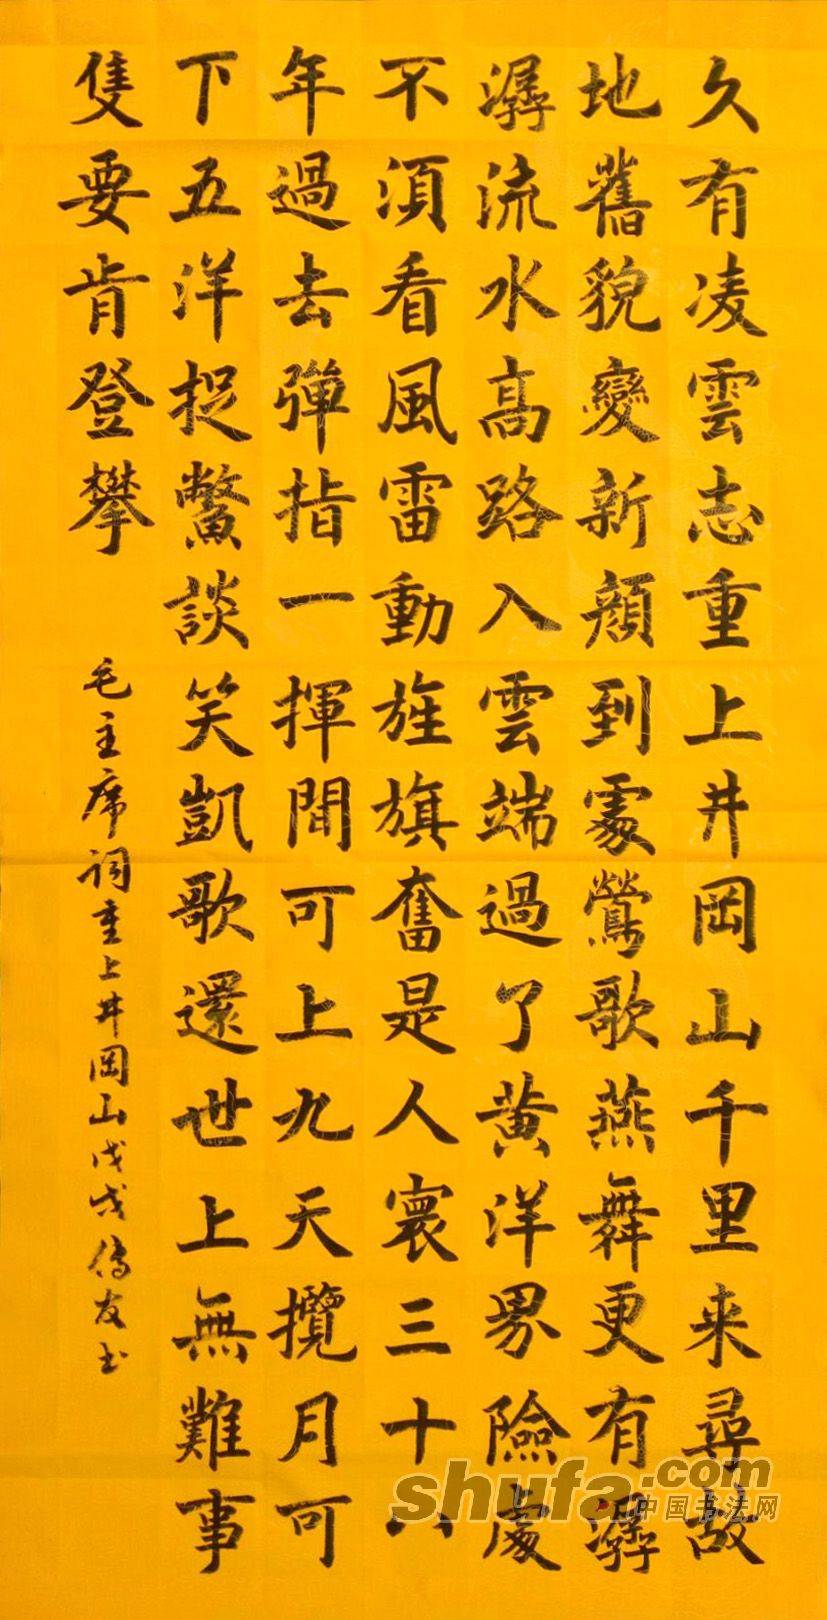 久有凌雲志重上井岡山千里来尋故
地舊貌變新顔到處鶯歌燕舞更有潺
潺流水高路入雲端過了黄洋界險處
不須看風雷動旌旗奮是人寰三十八
年過去彈指一揮間可上九天攬月可
下五洋捉鱉談笑凱歌還世上無難事
隻要肯登攀
毛主席詞重上井岡山戊戌傳友书
shufa.com
中国书法网